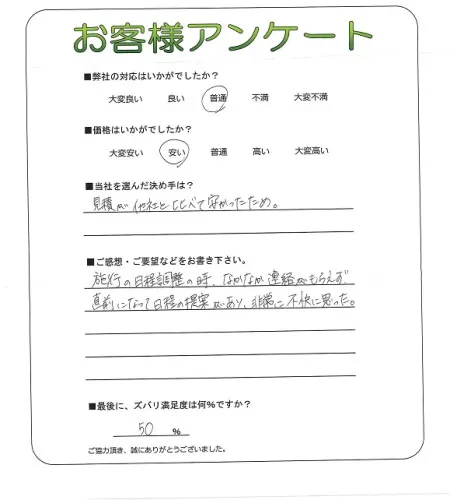 お客様アンケート
■弊社の対応はいかがでしたか?
大変良い 良い 普通 不満 大変不満
■価格はいかがでしたか?
大変安い 安い 普通 高い 大変高い
■当社を選んだ決め手は?
見積が他社と比べて安かったため。
■ご感想・ご要望などをお書き下さい。
施行の日程調整の時、なかなか連絡がもらえず、
直前になって日程の提案があり、非常に不快に思った。
■最後に、ズバリ満足度は何%ですか?
50 %
ご協力頂き、誠にありがとうございました。